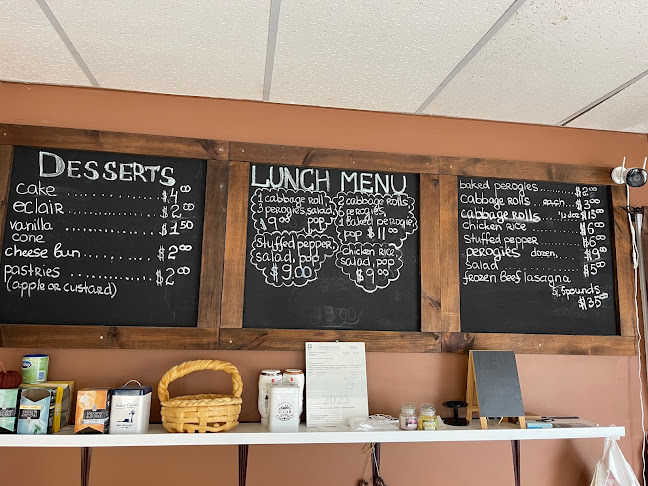 DESSERTS
cake .............. $4.00
eclair .............. $2.00
vanilla .............. $1.50
cone
cheese bun .............. $2.00
pastries .............. $2.00
(apple or custard)
LUNCH MENU
1 cabbage roll,
3 perogies, salad,
$9.00 pop
2 cabbage rolls
6 perogies,
1 baked perogie
pop $11.00
Stuffed pepper,
salad, pop
$9.00
Chicken Rice
salad, pop
$9.00
baked perogies .............. $2.00
cabbage rolls .... each .... $3.00
cabbage rolls 1/2 doz $15.00
chicken rice $6.00
Stuffed pepper .............. $6.00
perogies dozen, $9.00
salad .............. $5.00
frozen Beef lasagna
5,5 pounds
$35.00
2023